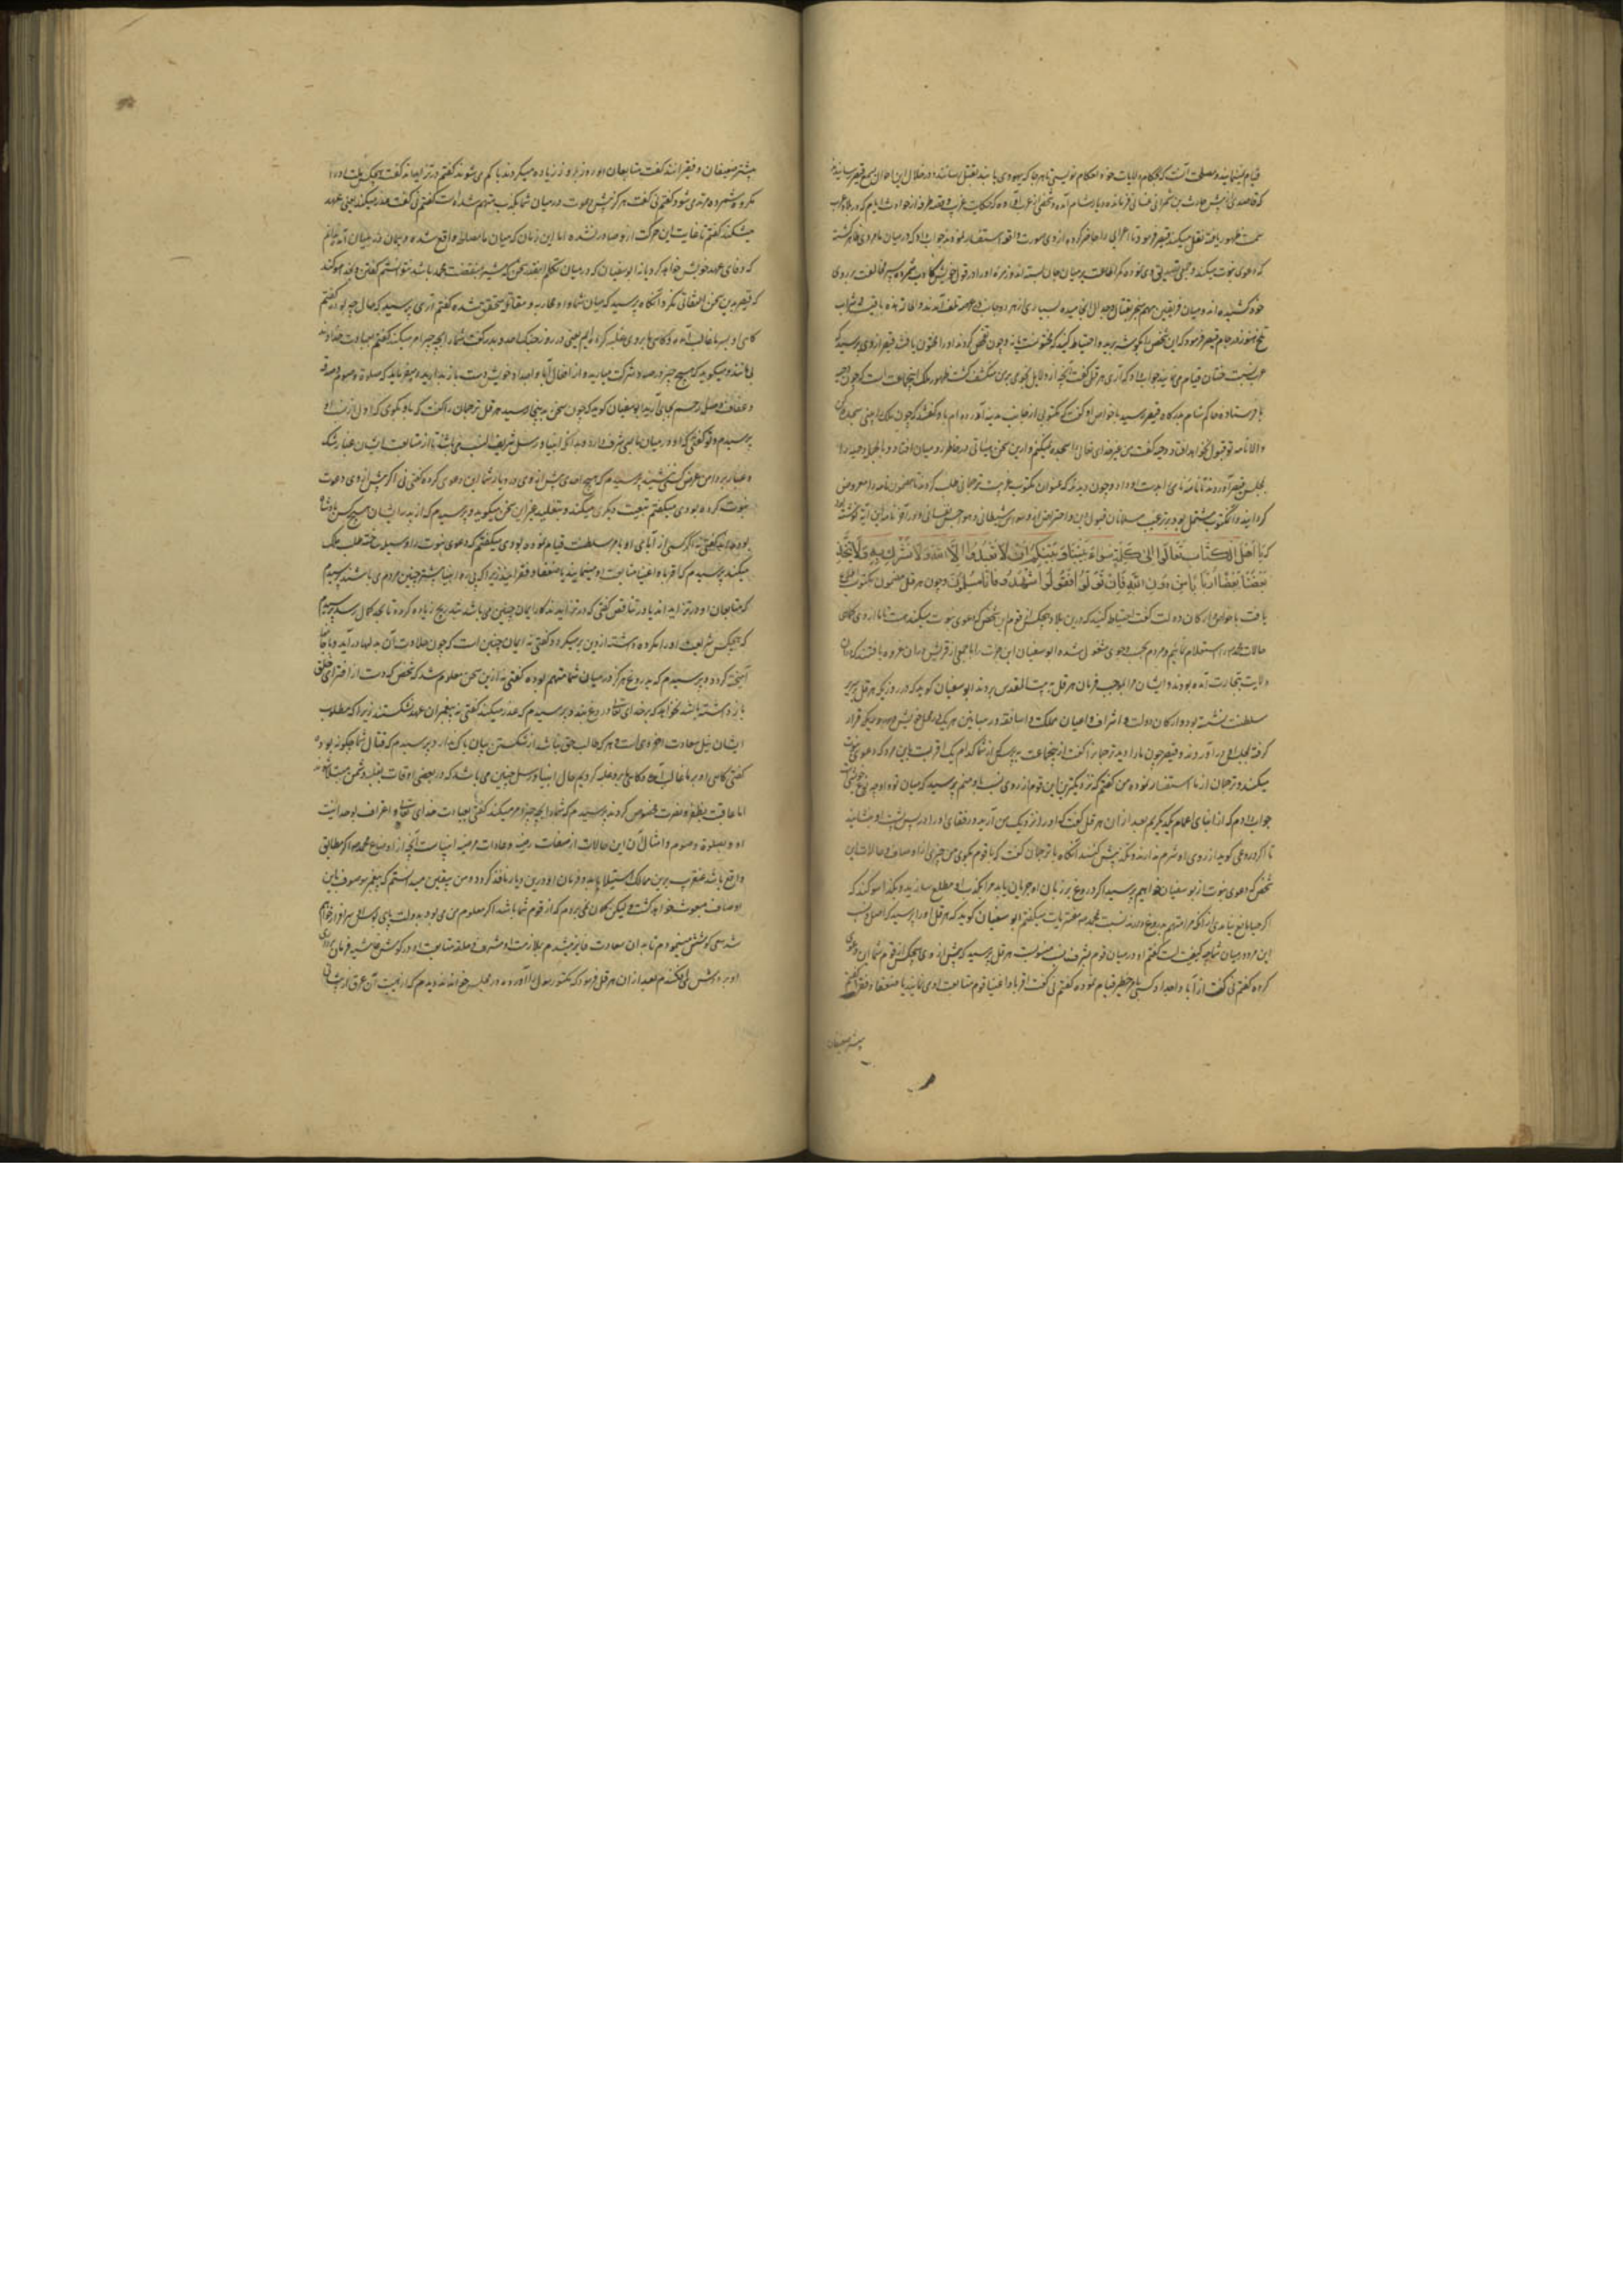 قیام نمایند و مصلحت آنست که بحکام ولایات خود احکام نویسی تا هر جا که یهودی یابند بقتل رسانند و در خلال این احوال بسمع قیصر رسانیدند
که قاصدی از پیش حارث بن غسانی فرمانده دیار شام آمده و شخصی از عرب آورده که حکایت غریب و قصه طرفه از حوادث ایام که در بلاد عرب
سمت ظهور یافته نقل میکند قیصر فرمود تا اعرابی را حاضر کرده از وی صورت واقعه استفسار نمودند جواب داد که در میان ما مردی ظاهر گشته
که دعوی نبوت میکند و جمعی تصدیق وی نموده کمر اطاعت بر میان جان بسته اند و زمره او را در قول خویش کاذب شمرده سپر مخالفت بر روی
خود کشیده اند و میان فریقین مهم بقتال و جدال انجامیده بسیاری از هر دو جانب در معرض تلف آمدند و
قیصر فرمود که این شخص را بگوشه برید و احتیاط کنید که مختونست یا نه و چون تفحص کردند او را مختون یافتند قیصر از وی پرسید که
عرب بسنت ختان قیام می نمایند جواب داد که آری هرقل گفت آنچه از دلایل نجومی بر من منکشف گشت ظهور ملک این جماعت است که چون دحیه
با فرستاده حاکم شام بدرگاه قیصر رسید با خواص او گفت که مکتوبی از جانب مدینه آورده ام باو گفتند که چون ملک را بینی سجده کن
والا نامه تو قبول نخواهد افتاد دحیه گفت من غیر خدای تعالی را سجده نمیکنم و ازین سخن
بمجلس قیصر آوردند تا نامه نامی را بدست او داد و چون دیدند که عنوان مکتوب بعربیست ترجمانی طلب کردند تا مضمون نامه را معروض
گردانید و آن مکتوب مشتمل بود بر ترغیب مسلمانان قبول دین و احتراز از وساوس شیطانی و هواجس نفسانی و در آخر نامه این آیه نوشته بود
که یا اهل الکتاب تعالوا الی کلمة سواء بیننا و بینکم ان لا نعبدوا الا الله ولا نشرک به ولا یتخذ
بعضنا بعضا اربابا من دون الله فان تولوا فقولوا اشهدوا بانا مسلمون و چون هرقل بر مضمون مکتوب اطلاع
یافت با خواص و ارکان دولت گفت احتیاط کنید که درین بلاد هیچکس از قوم این شخص که دعوی نبوت میکند هست تا از وی
حالات محمد را استعلام نمائیم و مردم بجست و جوی مشغول شده ابوسفیان ابن حرب را با جمعی از قریش در آن غزوه یافتند که بدان
ولایت بتجارت آمده بودند و ایشان را بموجب فرمان هرقل به بیت المقدس بردند ابوسفیان گوید که در روزیکه هرقل بر سریر
سلطنت نشسته بود و ارکان دولت و اشراف و اعیان مملکت و اساقفه و رهبانین هر یک در محل خویش قرار
گرفته ما را در آوردند و قیصر چون ما را دید ترجمان را گفت ازین جماعت بپرس که از شما کدام یک اقربست باین مرد که دعوی نبوت
میکند و ترجمان از ما استفسار نموده من گفتم که نزدیکترین این قوم از روی نسب باو منم پرسید که میان تو و او چه نوع خویشی است
جواب دادم که از ابنای اعمام یکدیگریم بعد از آن هرقل گفت که او را نزدیک من آرید و رفقای او را در پس پشت او بنشانید
تا اگر دروغی گوید از روی او شرم ندارند و تکذیبش کنند آنگاه با ترجمان گفت که با قوم بگوی من چیزی از اوصاف و حالات این
شخص که دعوی نبوت از ابوسفیان خواهم پرسید اگر دروغ بر زبان او جریان یابد مرا بکذب او مطلع سازید و بخدا سوگند که
اگر حیا مانع نیامدی از آنکه مرا متهم بدروغ دارند نسبت بمحمد مفتریات میگفتم ابوسفیان گوید که هرقل از من پرسید که اصل و نسب
این مرد در میان شما چه کیفیت است گفتم او در میان قوم بشرف نسب منسوبست هرقل پرسید که پیش از وی هیچکس از قوم شما این دعوی
کرده گفتم نی گفت از آبا و اجداد او کسی بامر خطیر قیام نموده گفتم نی گفت اقربا و اغنیا قوم متابعت او می نمایند یا ضعفا و فقرا گفتم
بیشتر ضعیفان
بیشتر ضعیفان و فقیرانند گفت متابعان او روز بروز زیاده میگردند یا کم می شوند گفتم در تزایداند گفت هیچیک ملت او را
مکروه شمرده مرتد می شود گفتم نی گفت هرگز پیش از دعوت در میان شما بکذب متهم شده است گفتم نی گفت غدر میکند یعنی عهد
میشکند گفتم تا غایت این حرکت ازو صادر نشده اما این زمان که میان ما مصالحه واقع شده و پیمان در میان آمده ندانم
که وفای عهد خویش خواهد کرد یا نه ابوسفیان که در میان تکلم اینقدر سخن که مشیر بمنقصت محمد باشد نتوانستم گفتن و بخدا سوگند
که قیصر بدین سخن التفاتی نکرد آنگاه پرسید که میان شما و او محاربه و مقاتله متحقق شده گفتم آری پرسید که حال چه بود گفتم
گاهی او بر ما غالب آمده و گاهی ما بر وی غلبه کرده ایم یعنی در روز جنگ احد و بدر گفت شما را بچه چیز امر میکند گفتم بعبادت خداوند
بی مانند و میگوید که هیچ چیز در صدد شرکت میارید و از افعال آبا و اجداد خویش دست باز دارید و میفرماید که صلوة و صوم و صدقه
و عفاف و صله رحم بجای آرید ابوسفیان گوید که چون سخن بدینجا رسید هرقل ترجمان را گفت که باو بگوی که اول از نسب او
پرسیدم و تو گفتی که او در میان ما بنسبی شرف دارد بدانکه انبیا و رسل شریف النسب می باشند تا از متابعت ایشان عار
و غبار بر دامن عرض کسی ننشیند پرسیدم که هیچ احدی پیش از وی در دیار شما این دعوی کرده گفتی نی اگر پیش از وی دعوت
نبوت کرده بودی میگفتم تبعیت دیگری میکند و بتقلید غیر این سخن میگوید و پرسیدم که از پدران ایشان هیچکس پادشاه
بوده یا نه گفتی نه اگر کسی از آبای او بامر سلطنت قیام نموده بودی میگفتم که دعوی نبوت را وسیله ساخته طلب ملک
میکند پرسیدم که اقربا و اغنیا متابعت او مینمایند یا ضعفا و فقرا پیش انبیا بیشتر چنین مردم می باشند پرسیدم
که متابعان او در تزایداند یا در تناقص گفتی که در تزایدند کار ایمان چنین می باشد بتدریج زیاده گردد تا بحد کمال رسد پرسیدم
که هیچکس شریعت او را مکروه داشته از دین بر میگردد گفتی نه ایمان چنین است که چون حلاوت آن بدلها در آید و با جان
آمیخته گردد و پرسیدم که بدروغ هرگز در میان شما متهم بوده گفتی نه ازین سخن معلوم شد که شخصی که دست از افترای خلق
باز داشته باشد نخواهد که بر خدای تعالی دروغ بندد و پرسیدم که غدر میکند گفتی نه پیغمبران عهد نشکستند زیرا که مطلوب
ایشان نیل سعادت اخروی است و هر که طالب حق باشد از شکستن پیمان باک دارد و پرسیدم که قتال شما چگونه بود
گفتی گاهی او بر ما غالب آمده و گاهی ما برو غلبه کردیم حال انبیا و رسل چنین می باشد که در بعضی اوقات بغلبه دشمن مبتلا شوند
اما عاقبت بظفر و نصرت مخصوص گردند پرسیدم که شما را بچه چیز امر میکند گفتی بعبادت خدای تعالی و اعتراف بوحدانیت
او و بصلوة و صوم و امثال آن این حالات از صفات رضیه و عادات مرضیه انبیاست آنچه از اوضاع محمد اگر مطابق
واقع باشد عنقریب برین ممالک استیلا یابد و فرمان او درین دیار نافذ گردد و من بیقین میدانستم که پیغمبر موصوف باین
اوصاف مبعوث خواهد گشت و لیکن گمان نمی بردم که از قوم شما باشد اگر معلوم من می بود بدولت پای بوس او سرافراز خواهم
شد سعی و کوشش مینمودم تا بدان سعادت فایز میشدم بملازمت او مشرف و حلقه متابعت او در گوش و غاشیه فرمان برداری
او بر دوش می افکندم بعد از آن هرقل فرمود که مکتوب رسول را آوردند و در مجلس خواندند و دیدم که از هیبت آن عرق از پیشانی